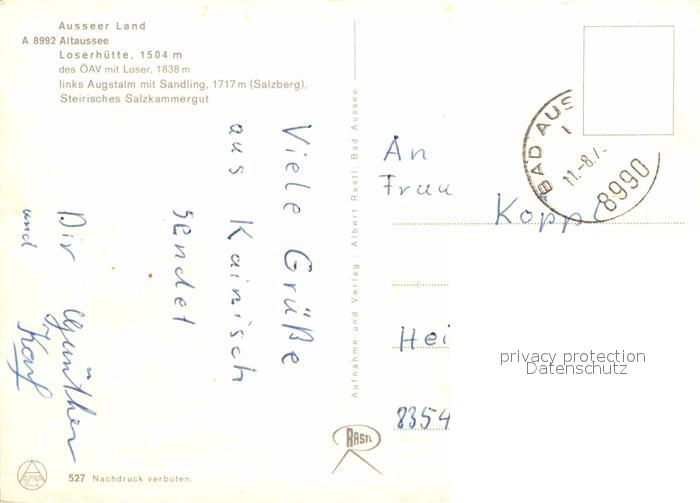 Ausseer Land
A 8992 Altaussee
Loserhütte, 1504 m
des ÖAV mit Loser, 1838 m
links Augstalm mit Sandling, 1717 m (Salzberg),
Steirisches Salzkammergut
Viele Grüße
aus Kainisch
sendet
Dir Günther
und Karl
Aufnahme und Verlag: Albert Rastl, Bad Aussee
RASTL
BAD AUS
11.-8.7
8990
An
Frau
Kopp
Hei
8354
privacy protection
Datenschutz
527 Nachdruck verboten.